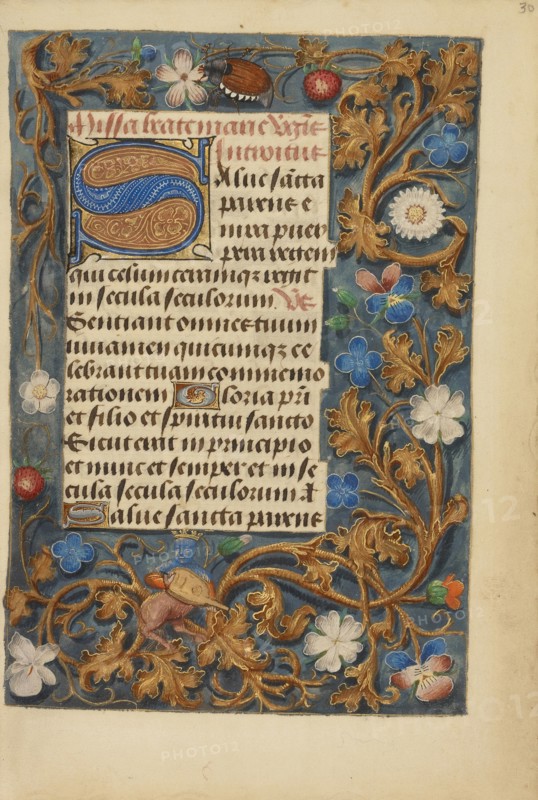 30
Missa beate marie v̄gīs
Introitus
Salue sancta
parens e
nixa puer
pera regem
qui celum terramqz regit
in secula seculorum. Vs̄
Sentiant omnes tuum
iuuamen quicumqz ce
lebrant tuam commemo
rationem Gloria pr̄i
et filio et spiritui sancto
Sicut erat in principio
et nunc et semper et in se
cula secula seculorum a
Salue sancta parens
PHOTO12
PHOTO12
PHOTO12
PHOTO12